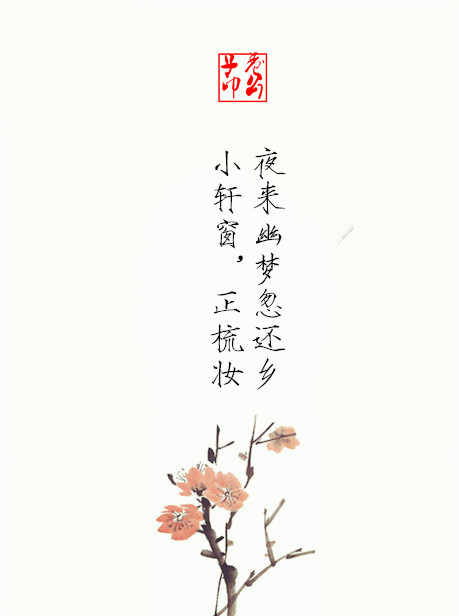 夜来幽梦忽还乡
小轩窗，正梳妆